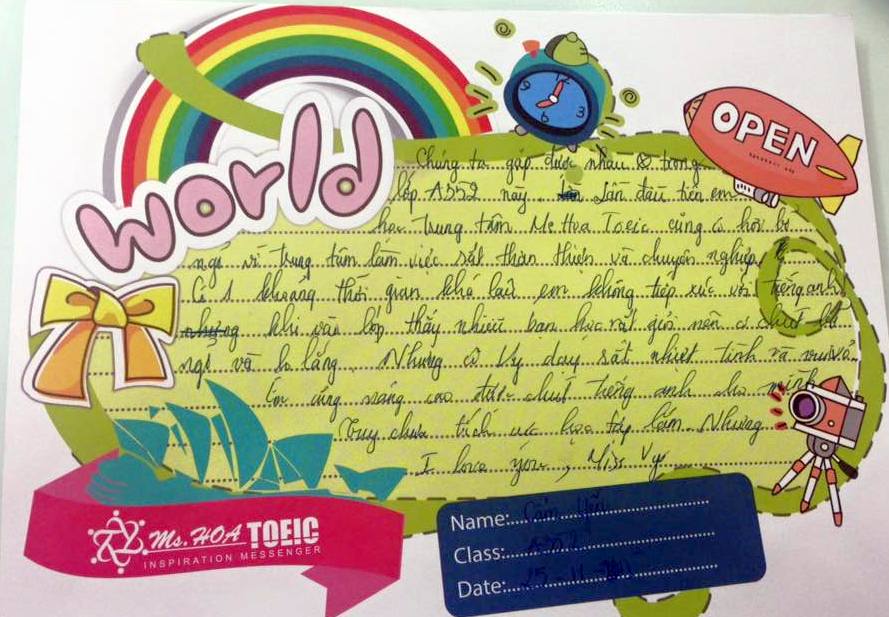 world
OPEN
Chúng ta gặp được nhau trong
lớp A552 này. Lần đầu tiên em
học trung tâm Ms Hoa Toeic cũng có hơi bỡ
ngỡ vì trung tâm làm việc rất thân thiện và chuyên nghiệp,
Có 1 khoảng thời gian khá lâu em không tiếp xúc với tiếng anh
khi vào lớp thấy nhiều bạn học rất giỏi nên có chút bỡ
ngỡ và lo lắng. Nhưng cô Vy dạy rất nhiệt tình và vui vẻ.
Em cũng nâng cao được chút tiếng anh cho mình
Tuy chưa tích cực học tập lắm. Nhưng
I love you, Miss Vy
Ms. HOA TOEIC
INSPIRATION MESSENGER
Name: Yến
Class: A552
Date: 25 - 11 -